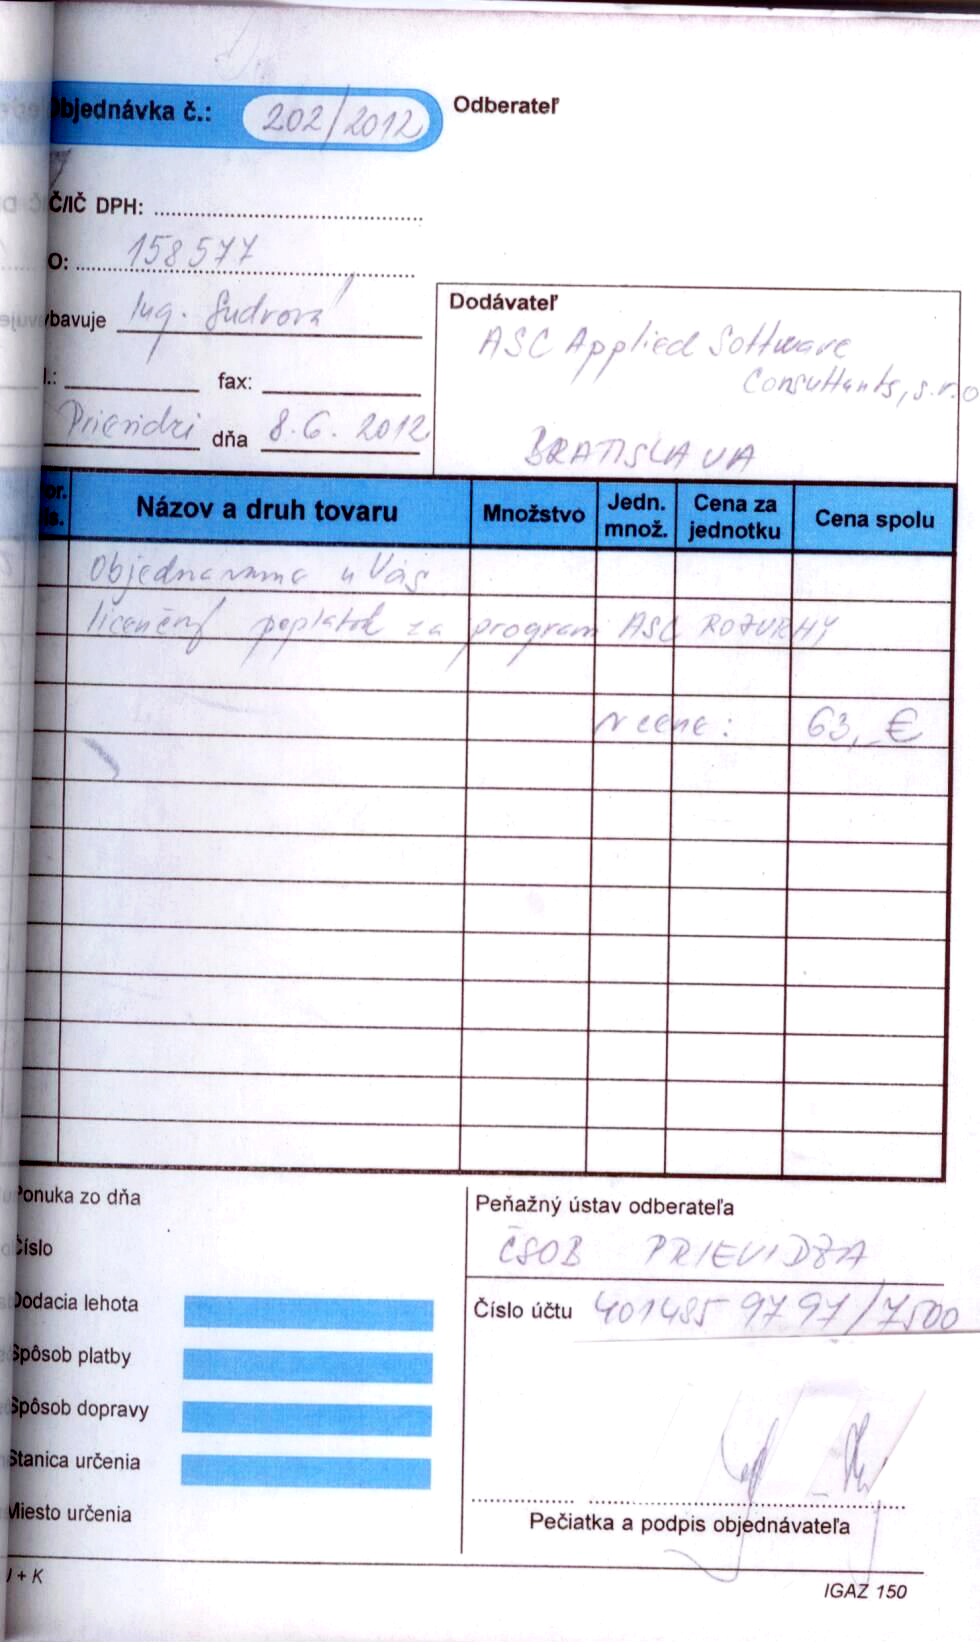 Objednávka č.: 202/2012
Odberateľ
IČ/IČ DPH:
O: 158577
Vybavuje Ing. Sudrová
l.: fax:
Prievidzi dňa 8.6.2012
Dodávateľ
ASC Applied Software
Consultants, s.r.o
BRATISLAVA
or.
is.
Názov a druh tovaru
Množstvo
Jedn.
množ.
Cena za
jednotku
Cena spolu
Objednávame u Vás
licenčný poplatok za program ASC ROZVRHY
v cene: 63,- €
Ponuka zo dňa
Číslo
Dodacia lehota
Spôsob platby
Spôsob dopravy
Stanica určenia
Miesto určenia
Peňažný ústav odberateľa
ČSOB PRIEVIDZA
Číslo účtu 4014859797/7500
Pečiatka a podpis objednávateľa
+ K
IGAZ 150